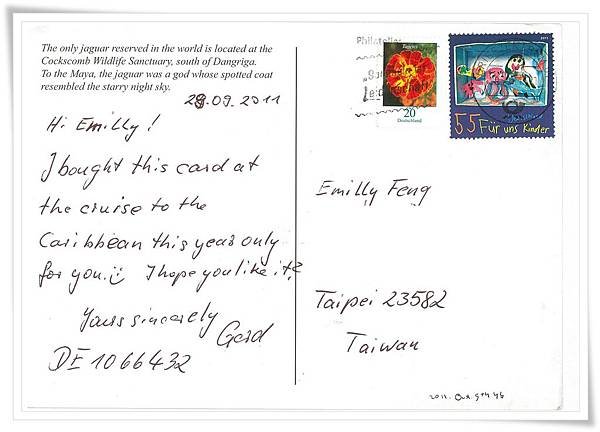 The only jaguar reserved in the world is located at the
Cockscomb Wildlife Sanctuary, south of Dangriga.
To the Maya, the jaguar was a god whose spotted coat
resembled the starry night sky.
28.09.2011
Hi Emilly!
I bought this card at
the cruise to the
Caribbean this year only
for you. I hope you like it?
Yours sincerely
Gerd
DE 1066432
Philatelie
Tagetes
20
Deutschland
2011
55 Für uns Kinder
Emilly Feng
Taipei 23582
Taiwan
2011. Oct. 9th